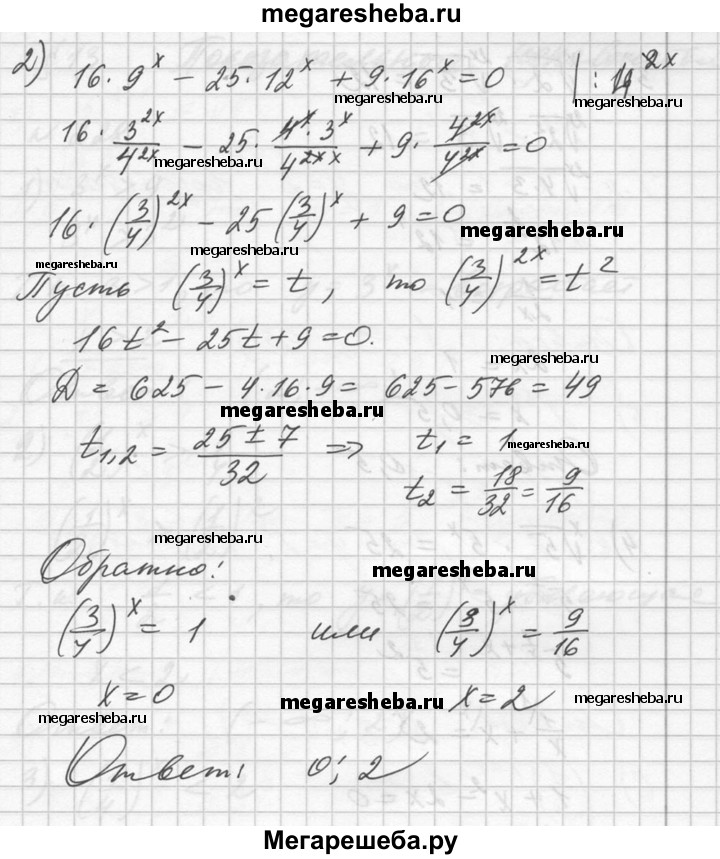 megaresheba.ru
2) 16 · 9^x − 25 · 12^x + 9 · 16^x = 0 | : 4^2x
megaresheba.ru megaresheba.ru
16 · 3^2x/4^2x − 25 · 4^x · 3^x/4^2x x + 9 · 4^2x/4^2x = 0
megaresheba.ru megaresheba.ru
16 · (3/4)^2x − 25 (3/4)^x + 9 = 0
megaresheba.ru
megaresheba.ru megaresheba.ru
Пусть (3/4)^x = t, то (3/4)^2x = t^2
16t^2 − 25t + 9 = 0.
megaresheba.ru
D = 625 − 4 · 16 · 9 = 625 − 576 = 49
megaresheba.ru
t1,2 = 25 ± 7/32 => t1 = 1
megaresheba.ru megaresheba.ru
t2 = 18/32 = 9/16
megaresheba.ru
Обратно:
megaresheba.ru
(3/4)^x = 1 или (3/4)^x = 9/16
x = 0 x = 2
megaresheba.ru megaresheba.ru megaresheba.ru
Ответ: 0; 2
Мегарешеба.ру